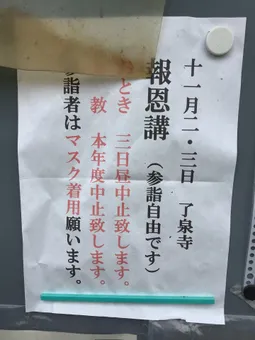 十一月二・三日 了泉寺
報恩講（参詣自由です）
とき 三日昼中止致します。
教 本年度中止致します。
参詣者はマスク着用願います。